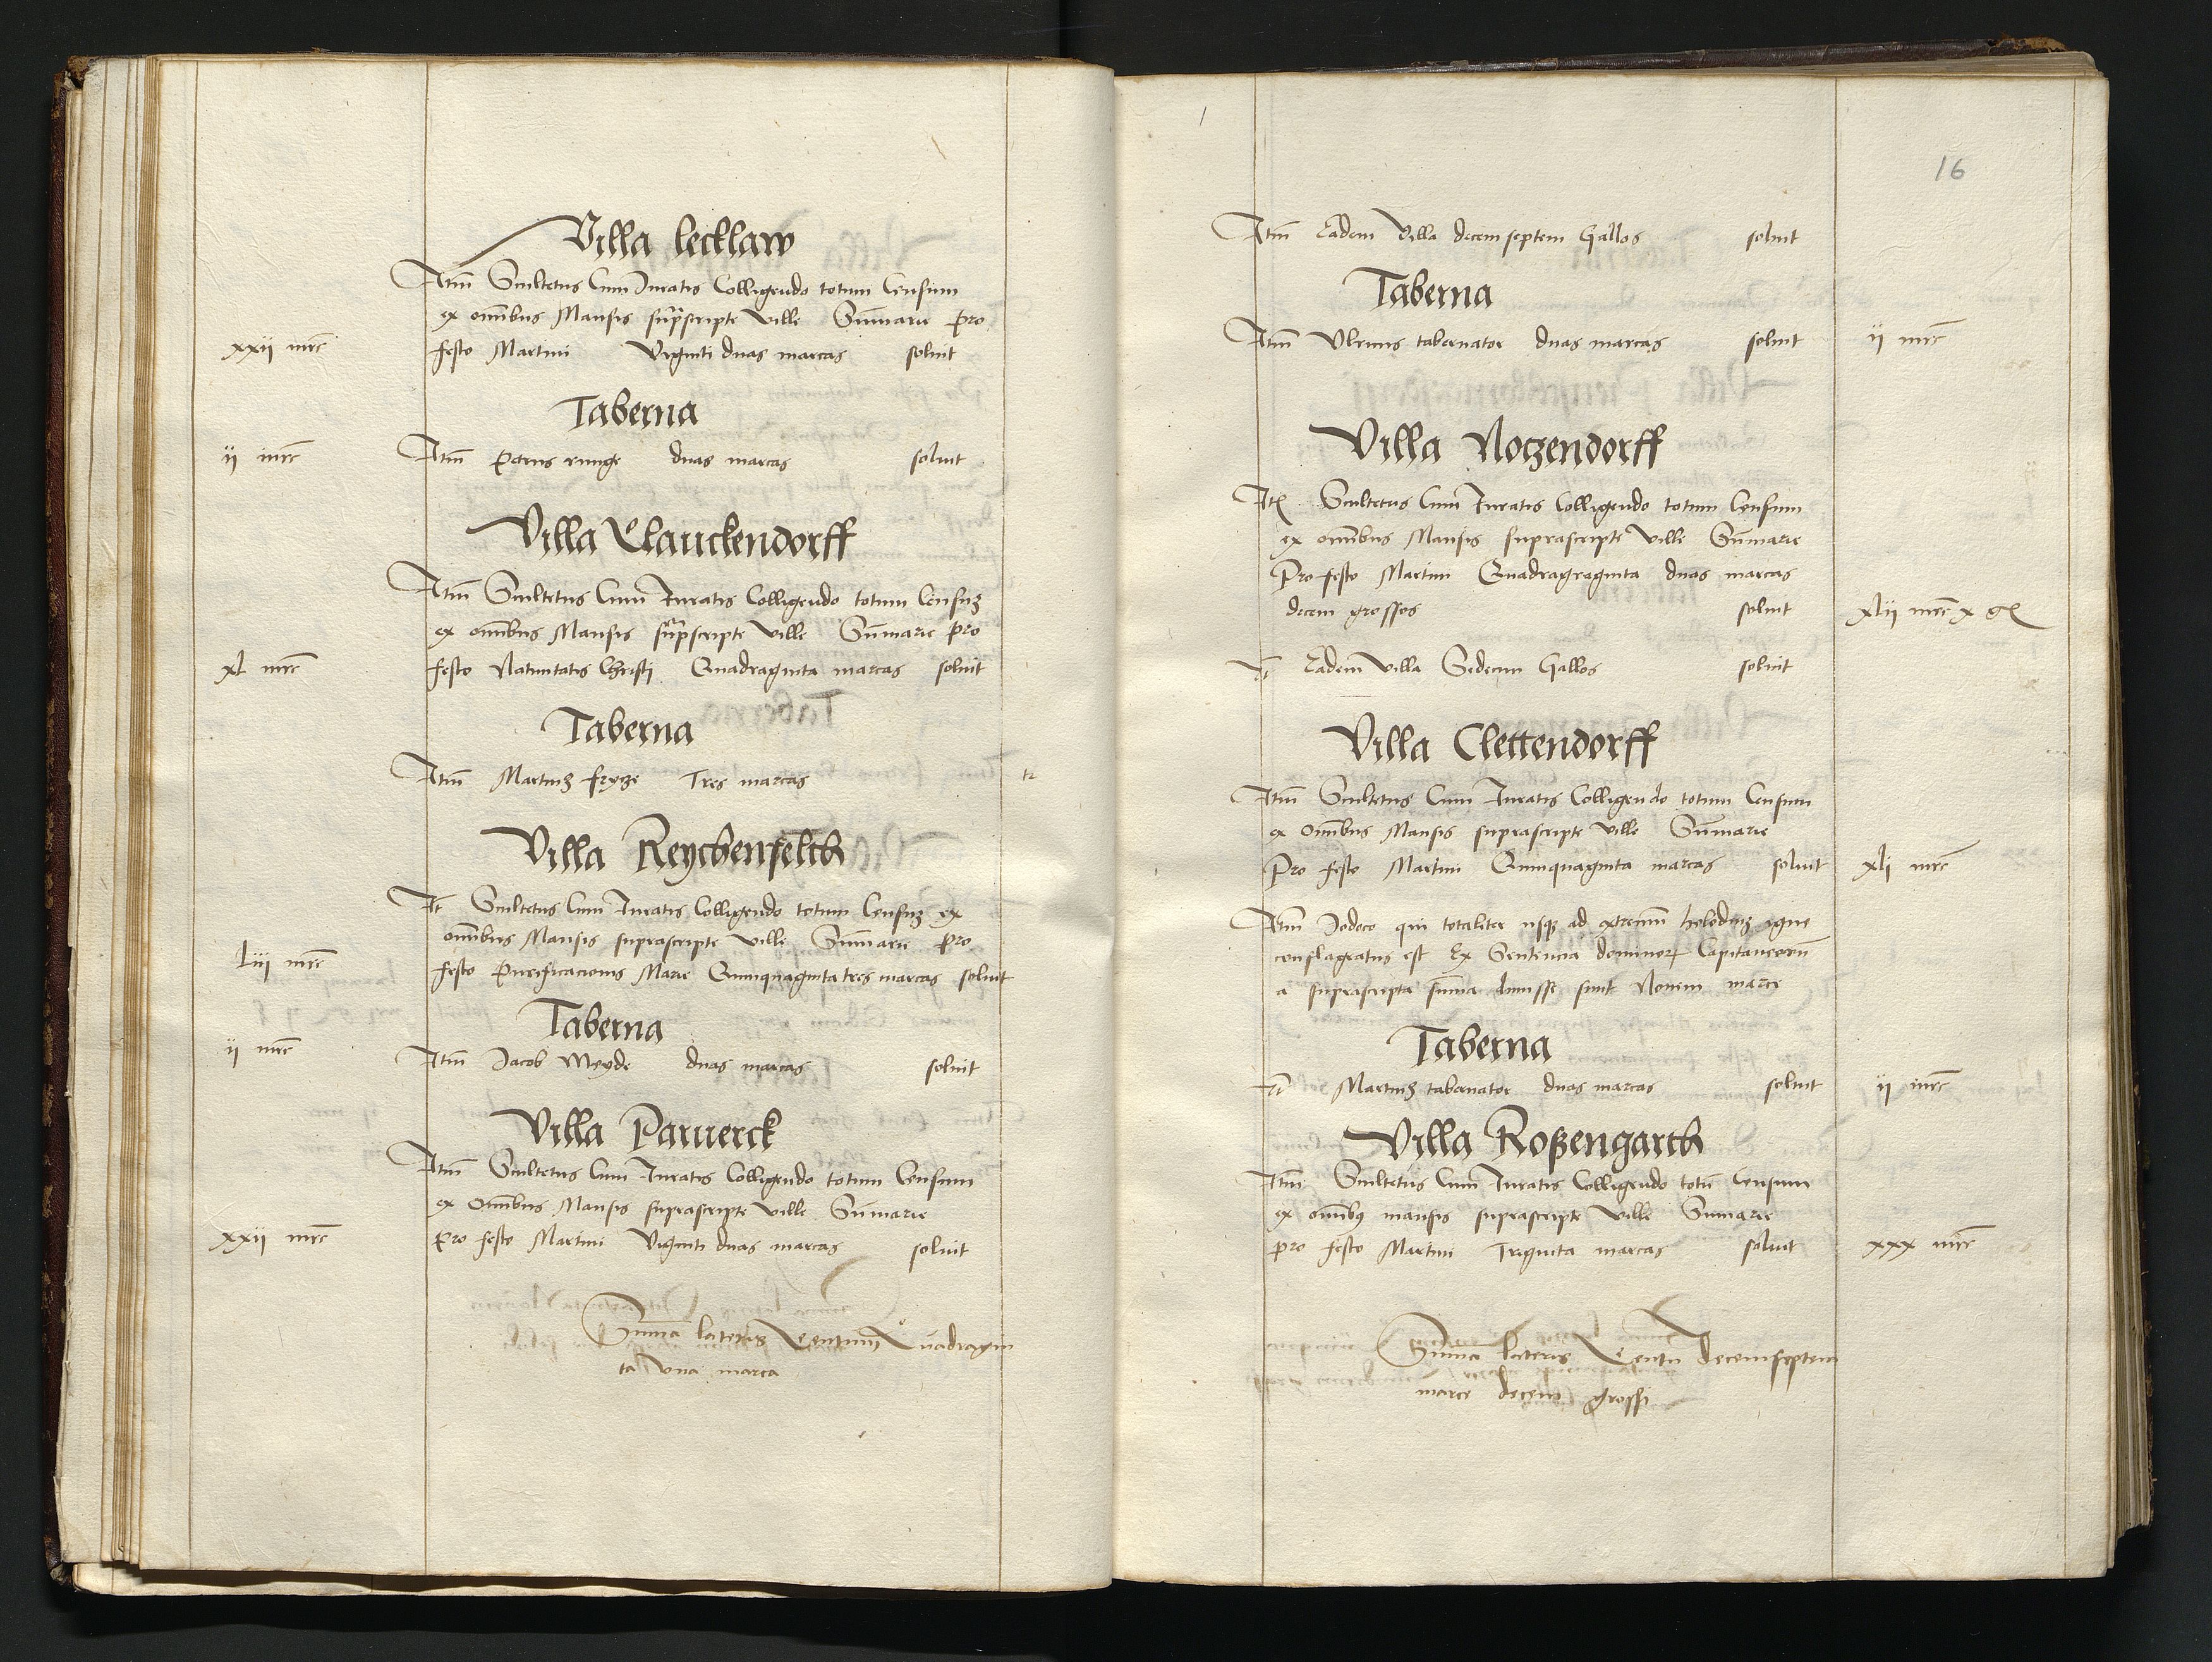 Villa lecklaw
Itm̄ Scultetus Cum Juratis Colligendo totum Censum
ex om̄ibus Mansis sup̄rscripte ville Sum̄arie pro
xxij mrc festo Martini Viginti duas marcas soluit
Taberna
ij mrc Itm̄ Petrus runge duas marcas soluit
Villa Clauckendorff
Itm̄ Scultetus Cum Juratis Colligendo totum Censuʒ
ex om̄ibus Mansis sup̄rscripte ville Sum̄arie pro
xl mrc festo Natiuitatis Christi Quadraginta marcas soluit
Taberna
Itm̄ Martinʒ fryze Tres marcas tr
Villa Reychenfelth
It̄ Scultetus Cum Juratis Colligendo totum Censuʒ ex
om̄ibus Mansis suprascripte ville Sum̄arie pro
Liij mrc festo Purificacionis Marie Quinquaginta tres marcas soluit
Taberna
ij mrc Itm̄ Jacob Weyde duas marcas soluit
Villa Paruerck
Itm̄ Scultetus Cum Juratis Colligendo totum Censum
ex Om̄ibus Mansis suprascripte ville Sum̄arie
xxij mrc pro festo Martini Viginti duas marcas soluit
Sum̄a lateris Centum Quadragin
ta Vna marca
16
Itm̄ Eadem Villa decem septem Gallos soluit
Taberna
Itm̄ Vlricus tabernator duas marcas soluit ij mrc
Villa Noczendorff
Itē Scultetus Cum Juratis Colligendo totum Censum
ex om̄ibus Mansis suprascripte ville Sum̄arie
Pro festo Martini Quadragraginta duas marcas
decem grossos soluit xlij mrc x g
It̄ Eadem Villa Sedecim Gallos soluit
Villa Clettendorff
Itm̄ Scultetus Cum Juratis Colligendo totum Censum
ex Om̄ibus Mansis suprascripte ville Sum̄arie
Pro festo Martini Quinquaginta marcas soluit xlj mrc
Itm̄ Jodoco qui totaliter usqʒ ad extremū holodinʒ igne
conflagratus est Ex Sentencia dominorꝝ Capitaneorū
a suprascripta sum̄a dimisse sunt Nouem marce
Taberna
It̄ Martinʒ tabernator duas marcas soluit ij mrc
Villa Roßengarth
Itm̄ Scultetus Cum Juratis Colligendo totū Censum
ex om̄ibꝰ mansis suprascripte Ville Sumarie
pro festo Martini Triginta marcas soluit xxx mrc
Sum̄a lateris Centū decemseptem
marce decem grossi